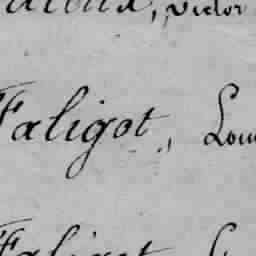 Victor
Faligot, Lou
Faligot